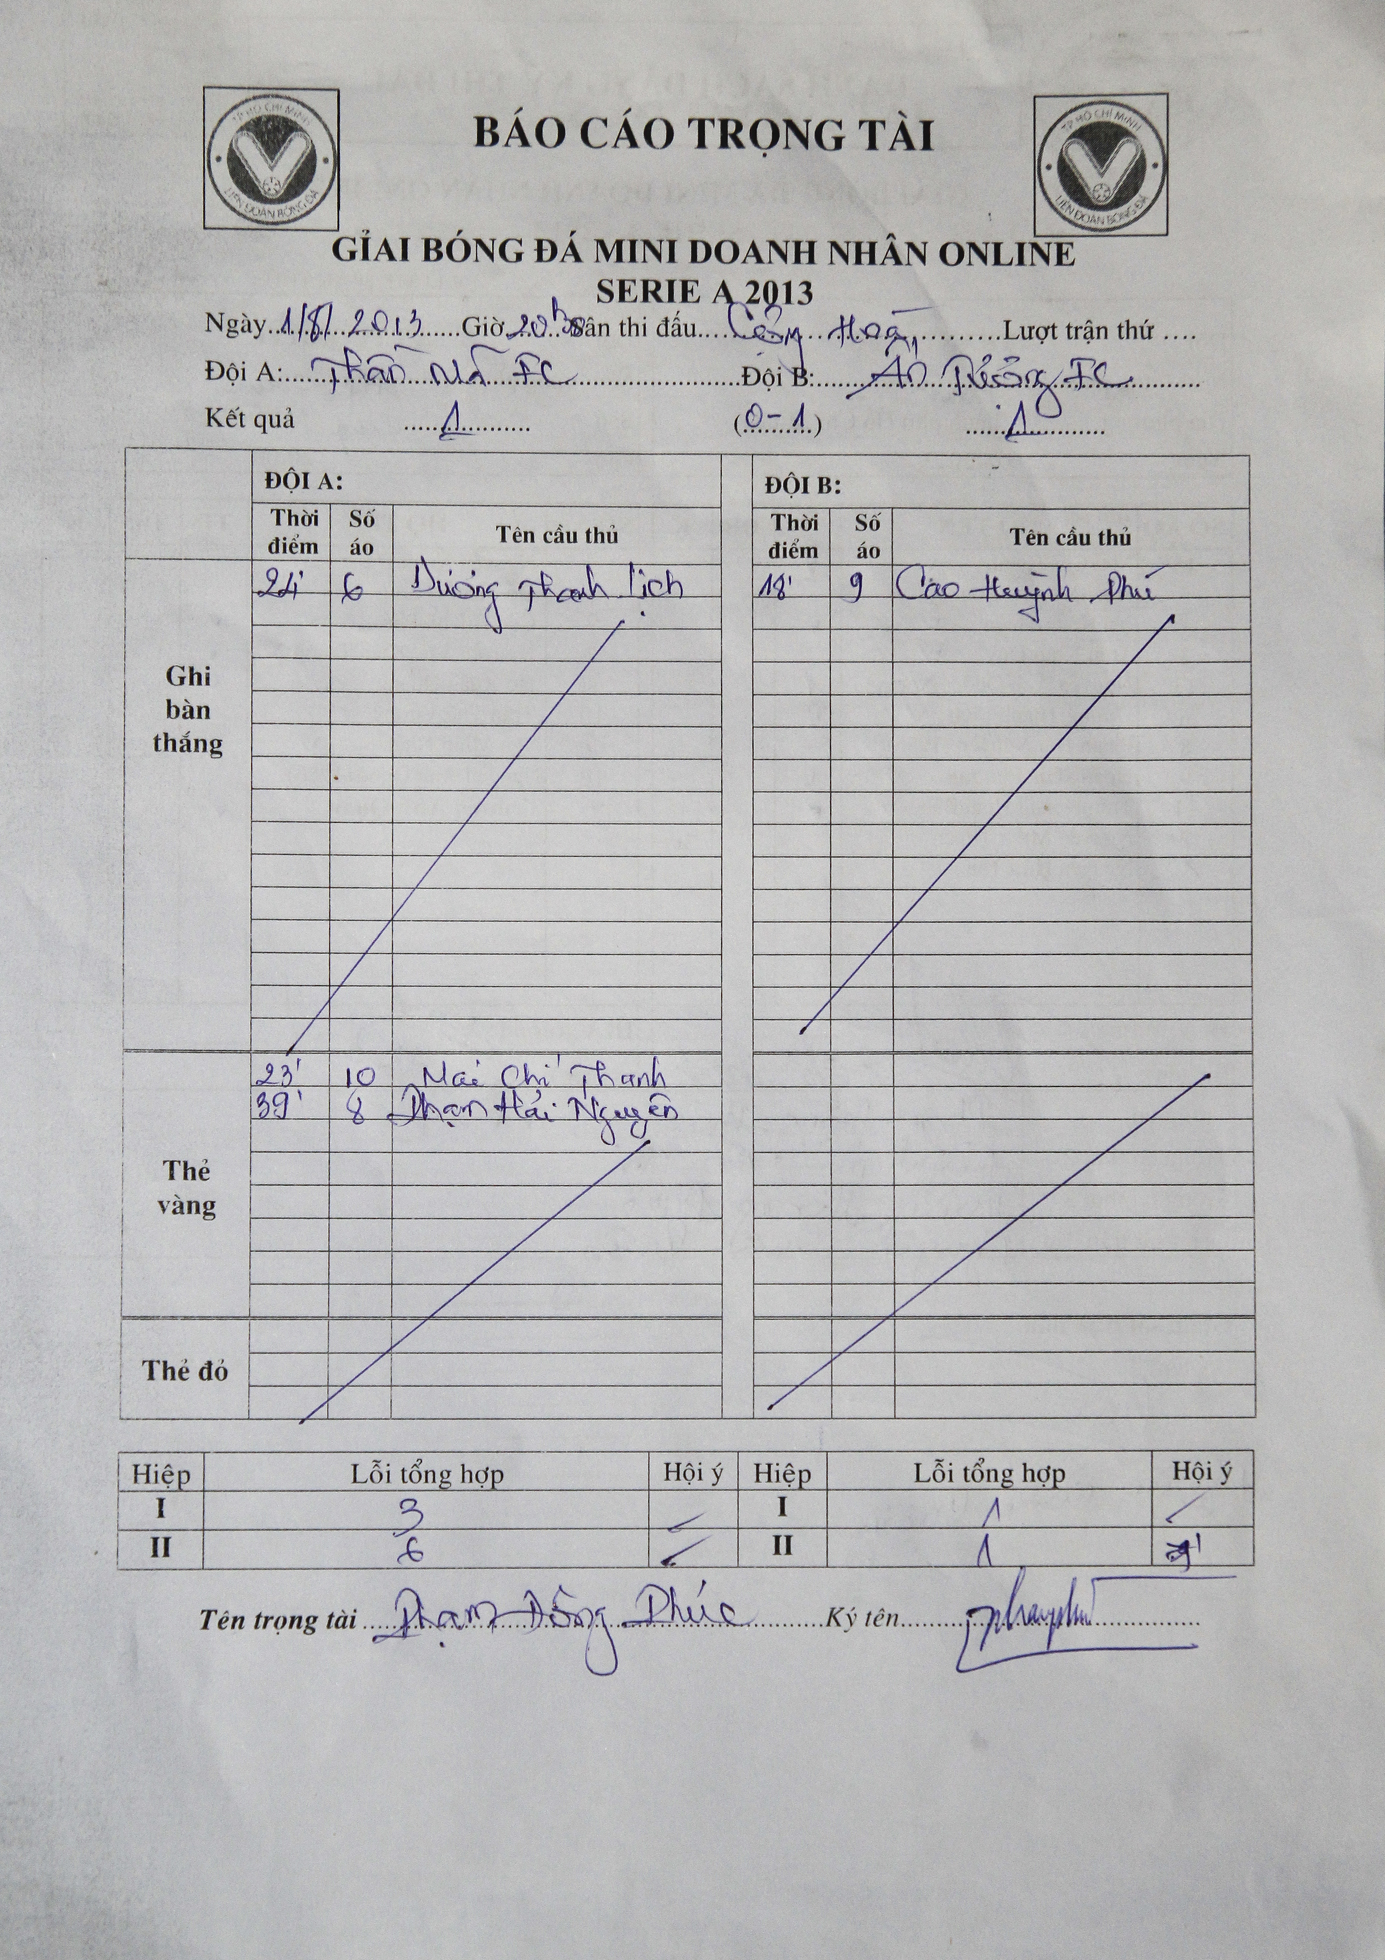 TP HỒ CHÍ MINH
LIÊN ĐOÀN BÓNG ĐÁ
BÁO CÁO TRỌNG TÀI
TP HỒ CHÍ MINH
LIÊN ĐOÀN BÓNG ĐÁ
GIẢI BÓNG ĐÁ MINI DOANH NHÂN ONLINE
SERIE A 2013
Ngày 1/8/2013 Giờ 20h30 Sân thi đấu Cộng Hoà Lượt trận thứ ....
Đội A: FC Đội B: FC
Kết quả 1 (0-1) 1
ĐỘI A: ĐỘI B:
Thời điểm Số áo Tên cầu thủ Thời điểm Số áo Tên cầu thủ
Ghi bàn thắng
24' 6 Dương Thanh Lịch 18' 9 Cao Huỳnh Phú
23' 10 Mai Chí Thanh
39' 8 Phạm Hải Nguyên
Thẻ vàng
Thẻ đỏ
Hiệp Lỗi tổng hợp Hội ý Hiệp Lỗi tổng hợp Hội ý
I 3 I 1
II 6 II 1
Tên trọng tài Phạm Đông Phúc Ký tên